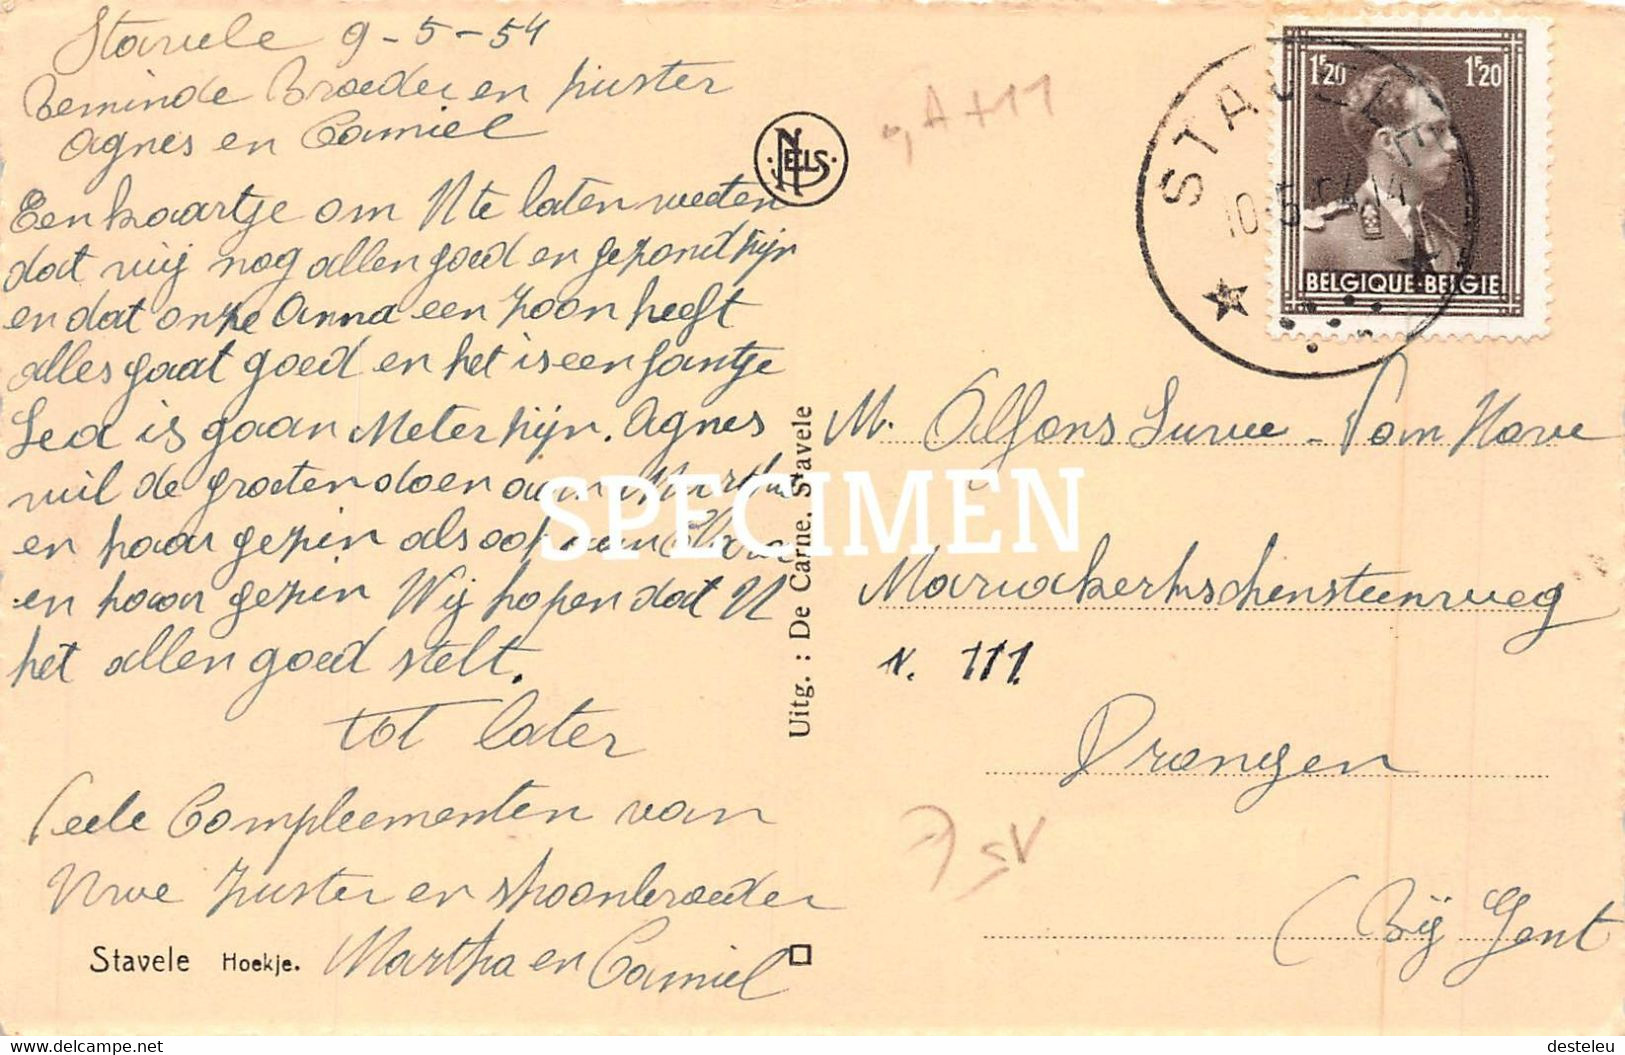 Stavele 9-5-54
Beminde Broeder en zuster
Agnes en Camiel
Een kaartje om U te laten weeten
dat wij nog allen goed en gezond zijn
en dat onze Anna een zoon heeft
alles gaat goed en het is een jantje
Lea is gaan Meter zijn. Agnes
wil de groeten doen aan Martha
en haar gezin alsook aan
en haar gezin Wij hopen dat U
het allen goed stelt.
tot later
Veele Complementen van
Uwe zuster en schoonbroeder
Martha en Camiel
Stavele Hoekje.
NELS
Uitg. : De Carne, Stavele
A+11
STAVELE
10-5 54 14
1F20 1F20
BELGIQUE-BELGIE
M. Alfons Suvee - Van Hove
Mariakerkschensteenweg
N. 111.
Drongen
(Bij Gent
SPECIMEN
Stamps-and-postcards-on-www.delcampe.net
desteleu